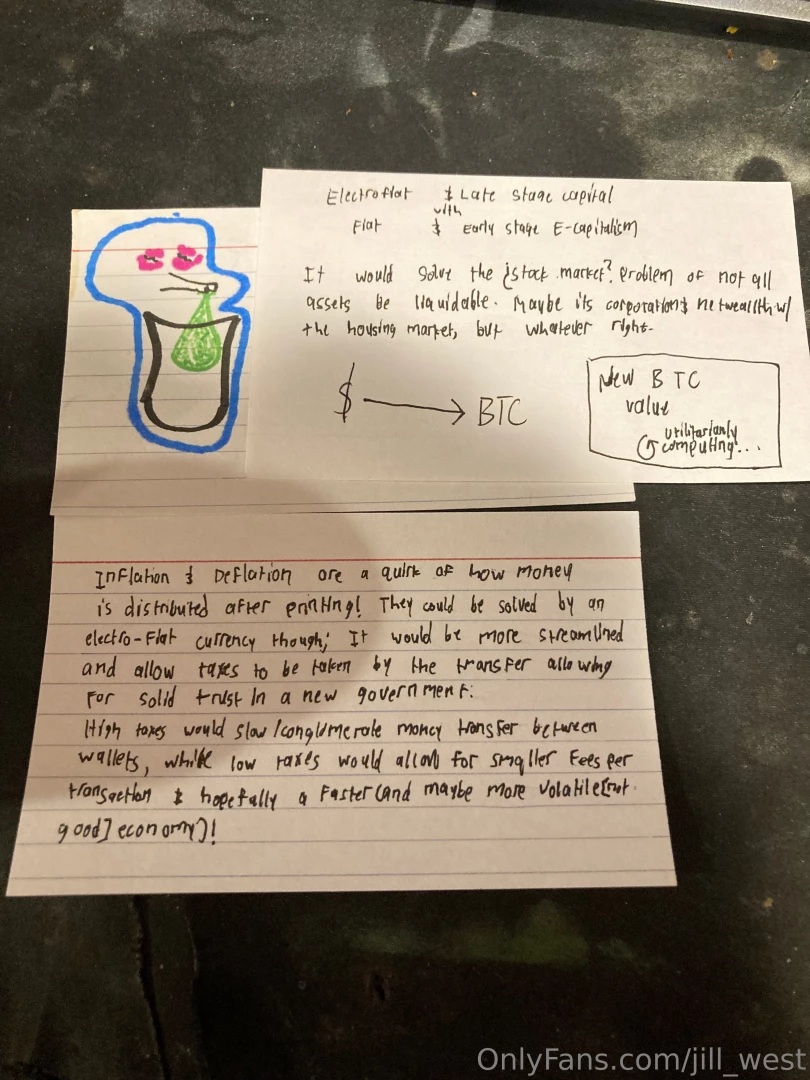 Electroflat $ Late stage capital
with
Flat $ Early stage E-capitalism
It would solve the ¿stock market? problem of not all
assets be liquidable. Maybe its corporations netwealth w/
the housing market, but whatever right.
$ → BTC
New BTC
value
utilitarianly
computing...
Inflation & Deflation are a quirk of how money
is distributed after printing! They could be solved by an
electro-flat currency though; It would be more streamlined
and allow taxes to be taken by the transfer allowing
for solid trust in a new government.
High taxes would slow/conglumerate money transfer between
wallets, while low taxes would allow for smaller fees per
transaction & hopefully a faster (and maybe more volatile [not
good] economy)!
OnlyFans.com/jill_west